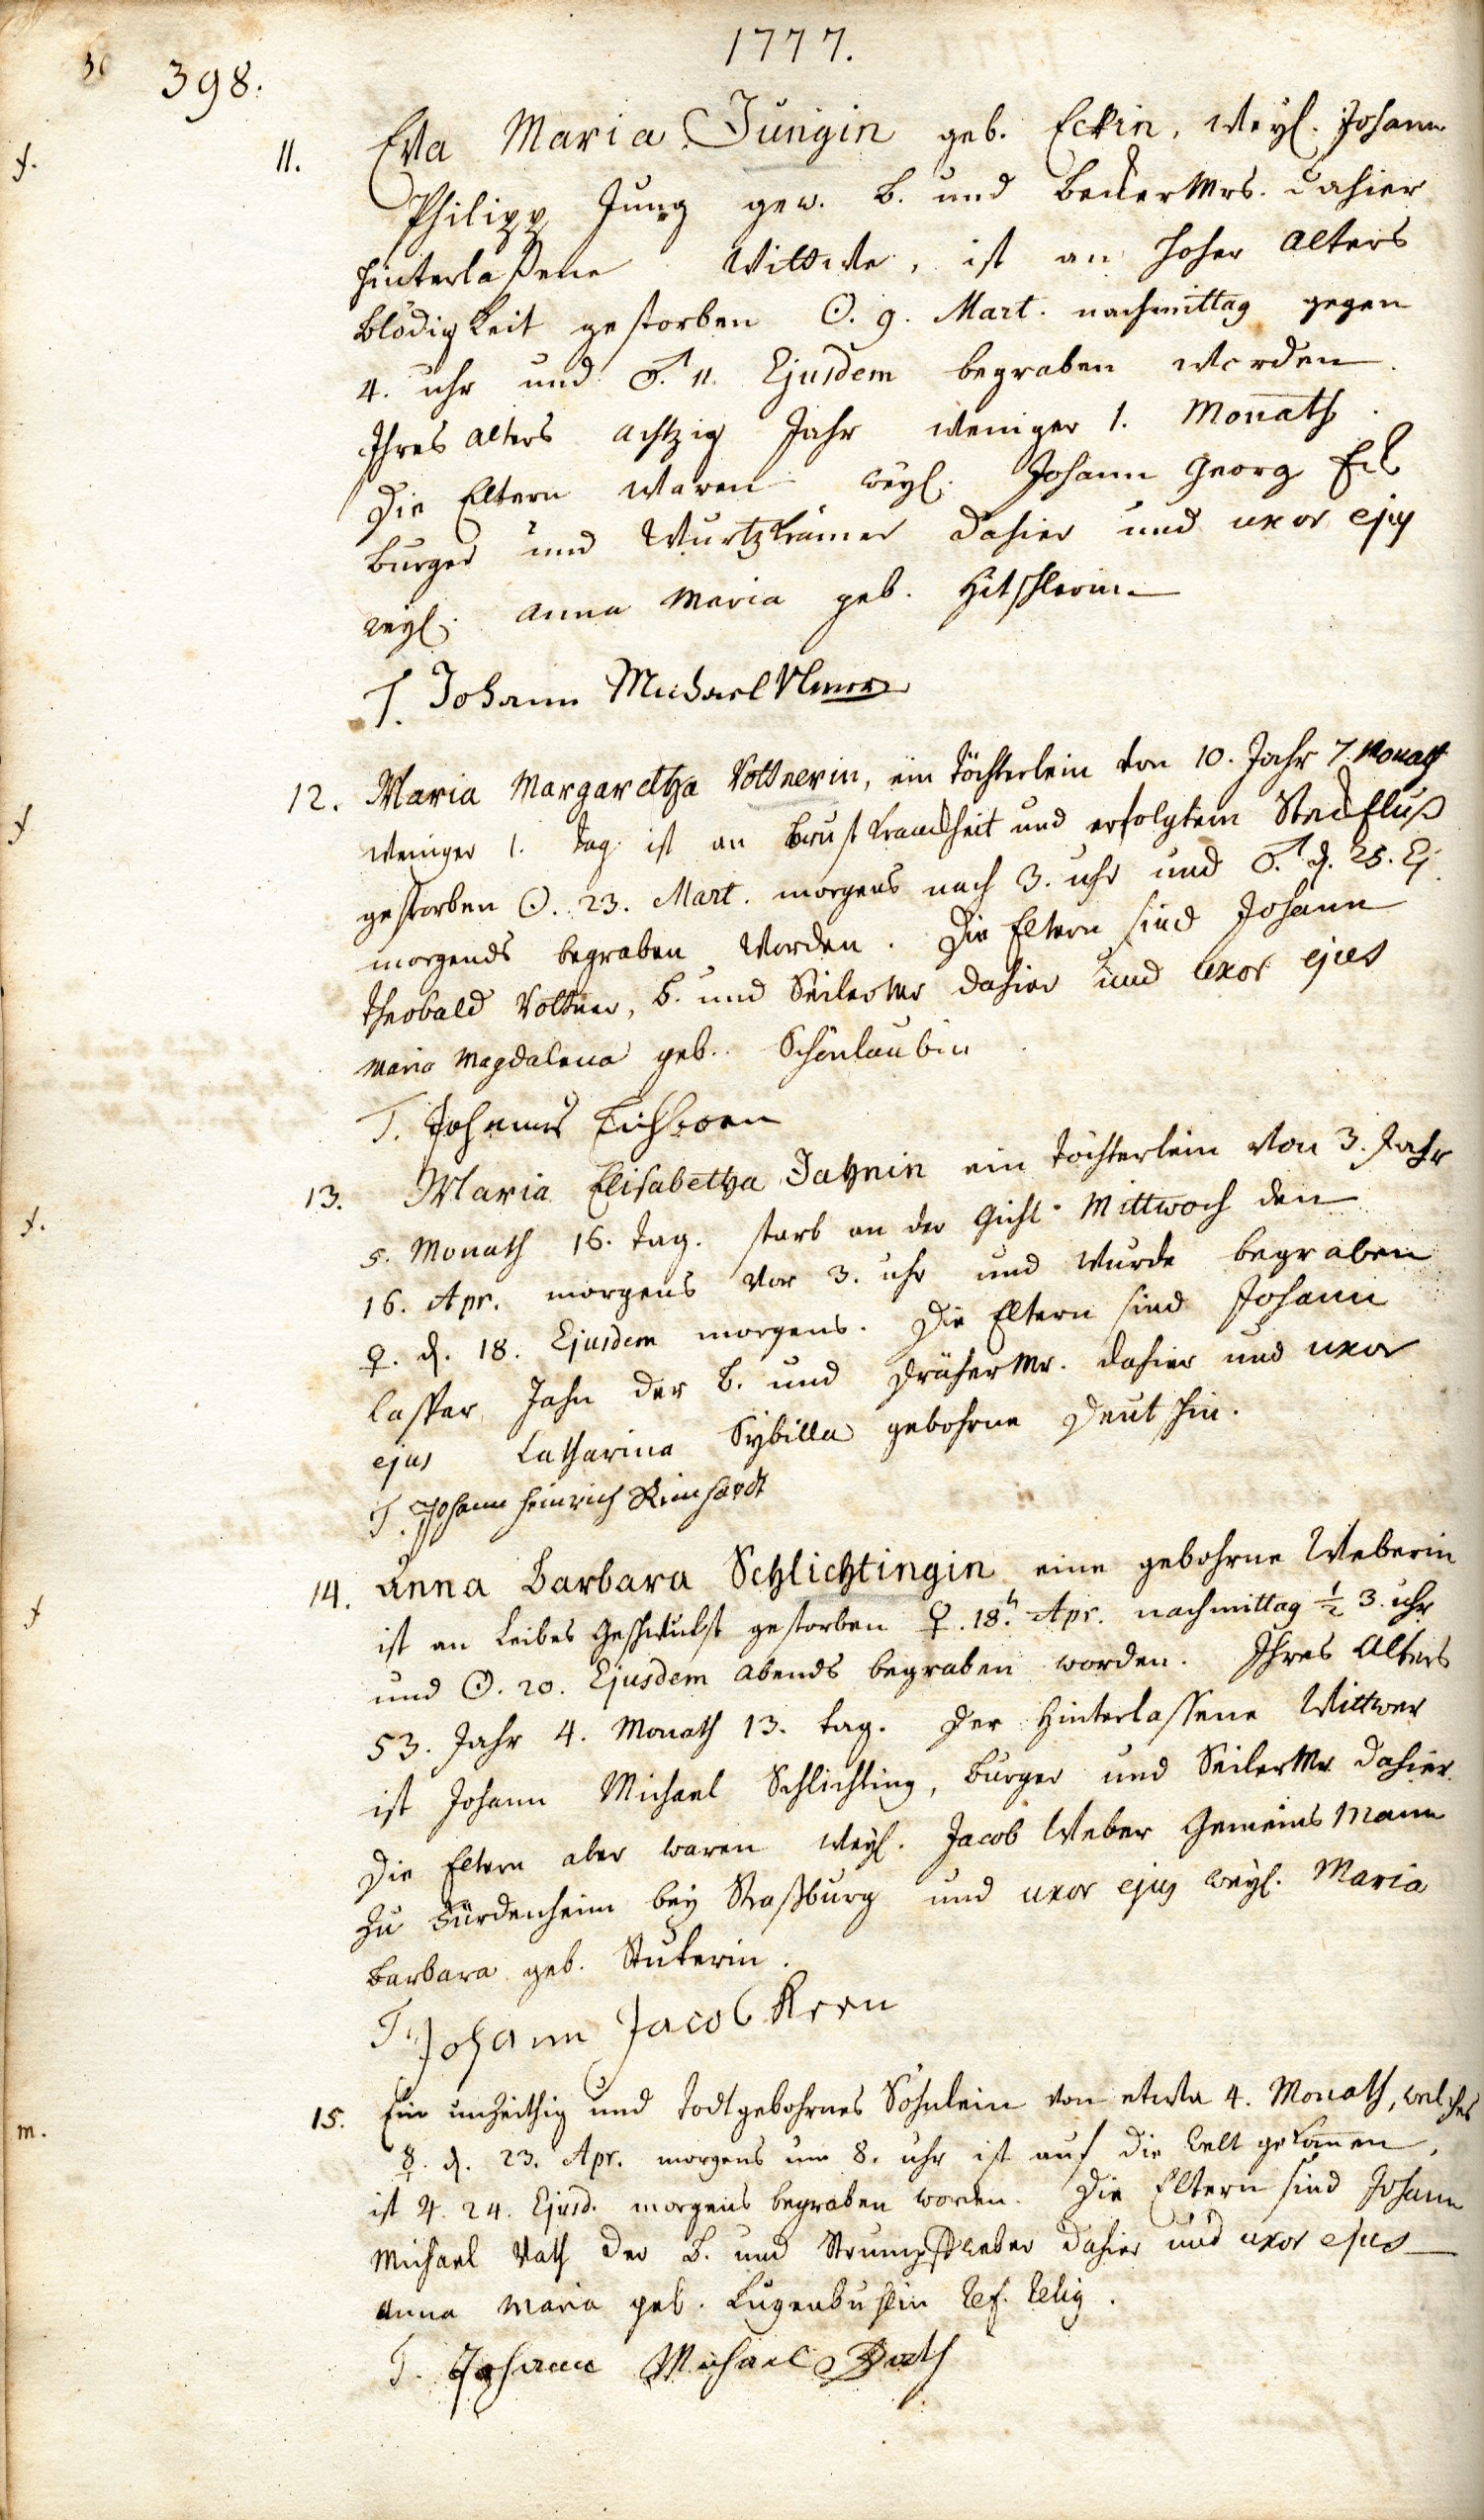 1777.
398.
f. 11. Eva Maria Jungin geb. Eckin, weyl. Johann
Philipp Jung gew. b. und Becker Mrs. dahier
hinterlaßene Wittwe, ist an hoher Alters
Blödigkeit gestorben ☉. 9. Mart. nachmittag gegen
4. uhr und ♂. 11. Ejusdem begraben worden.
Ihres alters achtzig Jahr weniger 1. Monath.
Die Eltern waren weyl. Johann Georg Eck
Burger und Wurtzkrämer dahier und uxor ejus
weyl. Anna Maria geb. Hitschlerin
T. Johann Michael Ulmer
f 12. Maria Margaretha Voltnerin, ein Töchterlein von 10. Jahr 7. Monath
weniger 1. Tag ist an Brustkranckheit und erfolgtem Steckfluß
gestorben ☉. 23. Mart. morgens nach 3. uhr und ♂. d. 25. Ej.
morgends begraben worden. Die Eltern sind Johann
Theobald Voltner, b. und Seiler Mr dahier und uxor ejus
Maria Magdalena geb. Schönlaubin
T. Johannes Eichhorn
f. 13. Maria Elisabetha Jahnin ein Töchterlein von 3. Jahr
5. Monath 16. Tag. starb an der Gicht Mittwoch den
16. Apr. morgens vor 3. uhr und wurde begraben
♀. d. 18. Ejusdem morgens. Die Eltern sind Johann
Casper Jahn der b. und Dräher Mr. dahier und uxor
ejus Catharina Sybilla gebohrne Deutschin.
T. Johann Heinrich Reinhardt
f 14. Anna Barbara Schlichtingin eine gebohrne Weberin
ist an Leibes Geschwulst gestorben ♀. 18. Apr. nachmittag ½ 3. uhr
und ☉. 20. Ejusdem abends begraben worden. Ihres Alters
53. Jahr 4. Monath 13. tag. Der Hinterlassene Wittwer
ist Johann Michael Schlichting, Burger und Seiler Mr dahier.
Die Eltern aber waren weyl. Jacob Weber Gemeins Mann
zu Fürdenheim bey Straßburg und uxor ejus weyl. Maria
Barbara geb. Stuterin.
T. Johann Jacob Kern
m. 15. Ein unzeithig und todtgebohrnes Söhnlein von etwa 4. Monath, welches
☿. d. 23. Apr. morgens um 8. uhr ist auf die Welt gekommen,
ist ♃. 24. Ejusd. morgens begraben worden. Die Eltern sind Johann
Michael Rath der b. und Strumpfweber dahier und uxor ejus
Anna Maria geb. Lugenbuhlin Ref. Relig.
T. Johann Michael Rath